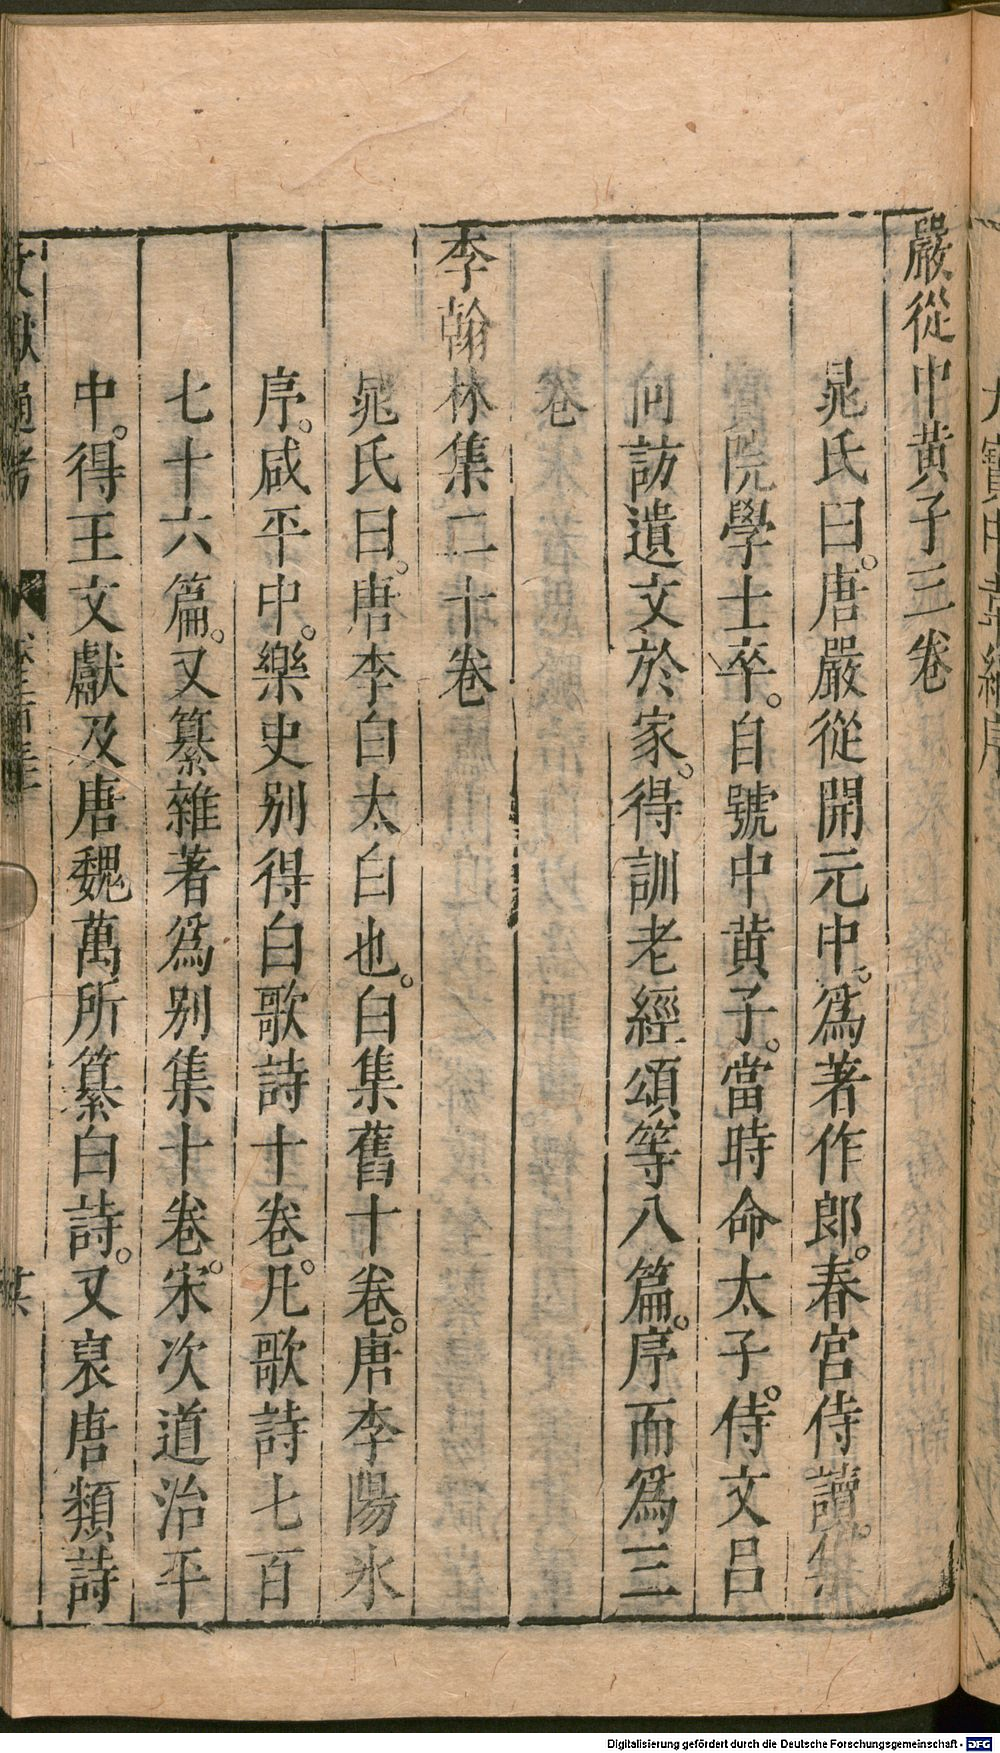 嚴從中黃子三卷
晁氏曰。唐嚴從開元中。爲著作郎。春宮侍讀。集
賢院學士卒。自號中黃子。當時命太子。侍文呂
向訪遺文於家。得訓老經頌等八篇。序而爲三
卷
李翰林集二十卷
晁氏曰。唐李白太白也。白集舊十卷。唐李陽氷
序。咸平中。樂史别得白歌詩十卷。凡歌詩七百
七十六篇。又纂雜著爲别集十卷。宋次道治平
中。得王文獻及唐魏萬所纂白詩。又裒唐類詩
文獻通考
Digitalisierung gefördert durch die Deutsche Forschungsgemeinschaft - DFG